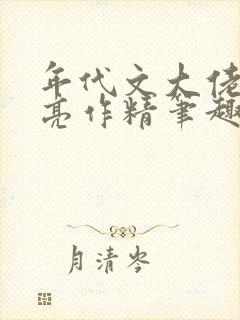 年代文大佬
亮作精笔趣
月清岑